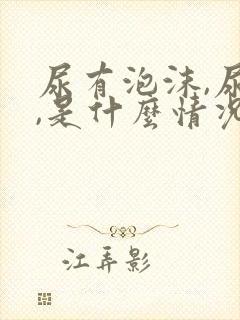 尿有泡沫,尿
,是什麼情况
江弄影